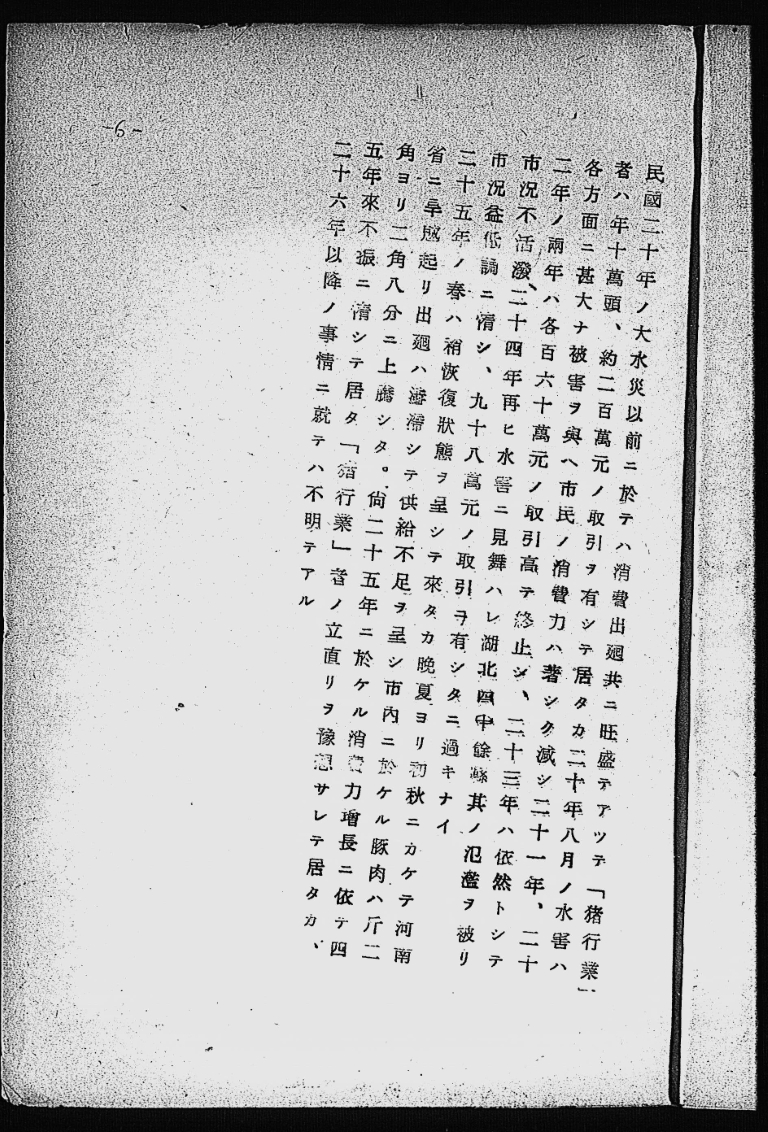 民國二十年ノ大水災以前ニ於テハ消費出廻共ニ旺盛テアツテ「猪行業」
者ハ年十萬頭、約二百萬元ノ取引ヲ有シテ居タカ二十年八月ノ水害ハ
各方面ニ甚大ナ被害ヲ與ヘ市民ノ消費力ハ著シク減シ二十一年、二十
二年ノ兩年ハ各百六十萬元ノ取引高テ終止シ、二十三年ハ依然トシテ
市況不活潑、二十四年再ヒ水害ニ見舞ハレ湖北四十餘縣其ノ氾濫ヲ被リ
市況益低調ニ墮シ、九十八萬元ノ取引ヲ有シタニ過キナイ
二十五年ノ春ハ稍恢復狀態ヲ呈シテ來タカ晩夏ヨリ初秋ニカケテ河南
省ニ旱起リ出廻ハ滯シテ供給不足ヲ呈シ市內ニ於ケル豚肉ハ斤二
角ヨリ二角八分ニ上騰シタ。尙二十五年ニ於ケル消費力增長ニ依テ四
五年來不振ニ墮シテ居タ「猪行業」者ノ立直リヲ豫想サレテ居タカ、
二十六年以降ノ事情ニ就テハ不明テアル
-6-